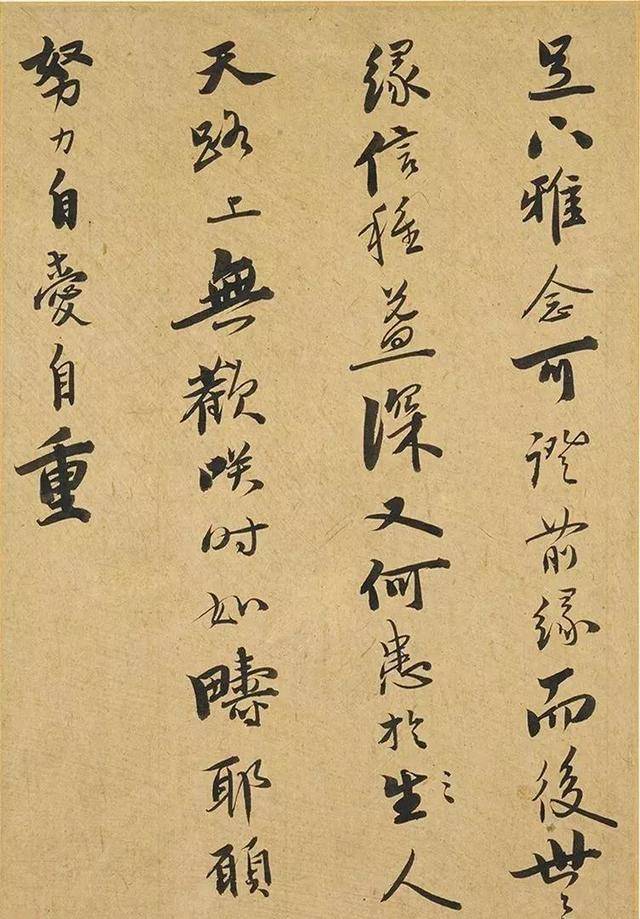 足下雅念可證前緣而後世〻
緣信種益深又何患於生〻人
天路上無歡咲时如疇耶願
努力自愛自重